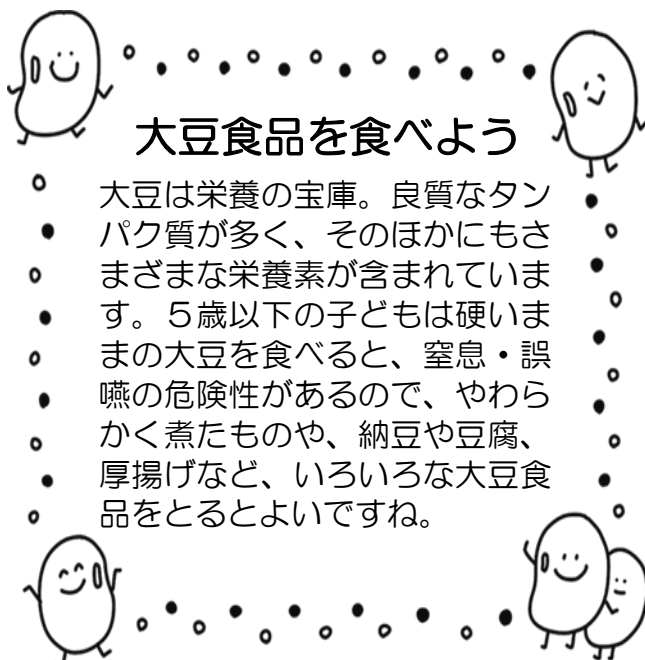 大豆食品を食べよう
大豆は栄養の宝庫。良質なタン
パク質が多く、そのほかにもさ
まざまな栄養素が含まれていま
す。５歳以下の子どもは硬いま
まの大豆を食べると、窒息・誤
嚥の危険性があるので、やわら
かく煮たものや、納豆や豆腐、
厚揚げなど、いろいろな大豆食
品をとるとよいですね。